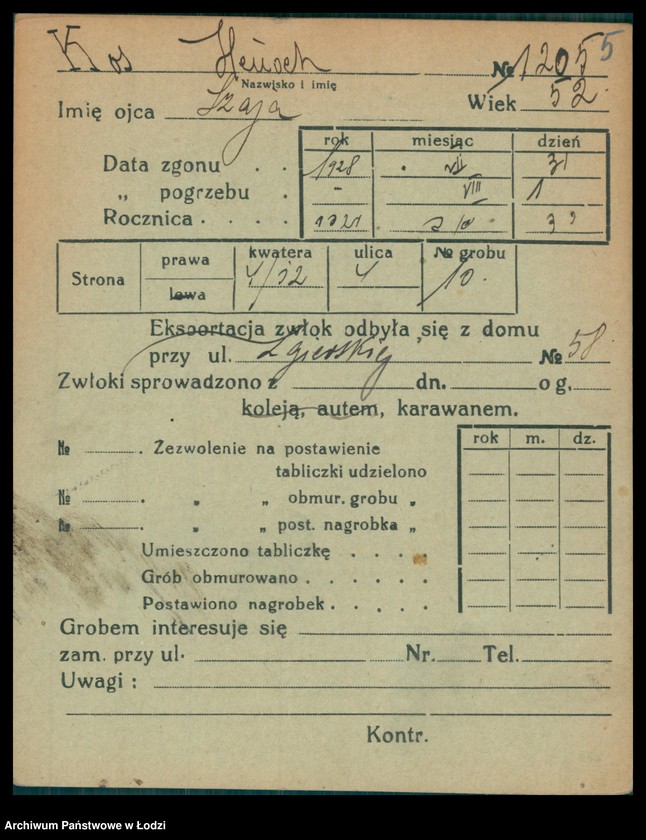 Kos Heńoch № 12055
Nazwisko i imię
Imię ojca Szaja Wiek 52
rok miesiąc dzień
Data zgonu . . 1928 VII 31
„ pogrzebu . - VIII 1
Rocznica . . . .
Strona prawa lewa kwatera ulica 4 № grobu 10
Eksportacja zwłok odbyła się z domu
przy ul. Zgierskiej № 58
Zwłoki sprowadzono z dn. o g.
koleją, autem, karawanem.
rok m. dz.
№ . Zezwolenie na postawienie
tabliczki udzielono
№ . „ „ obmur. grobu „
№ . „ „ post. nagrobka „
Umieszczono tabliczkę . . . .
Grób obmurowano . . . . .
Postawiono nagrobek . . . .
Grobem interesuje się
zam. przy ul. Nr. Tel.
Uwagi :
Kontr.
Archiwum Państwowe w Łodzi